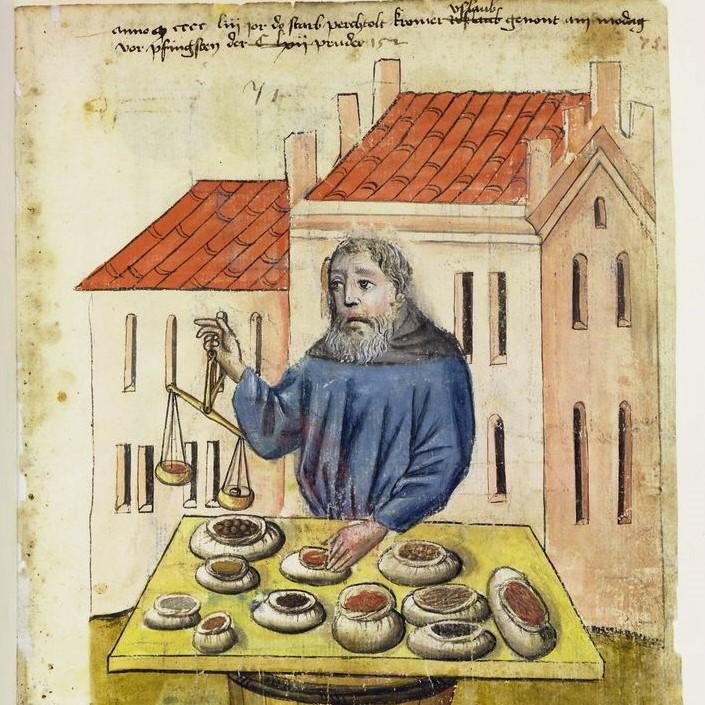 anno m cccc liij jor do starb perchtolt kromer vslaub genont am mōdag
vor pfingsten der C lxij pruder 152
71
75.